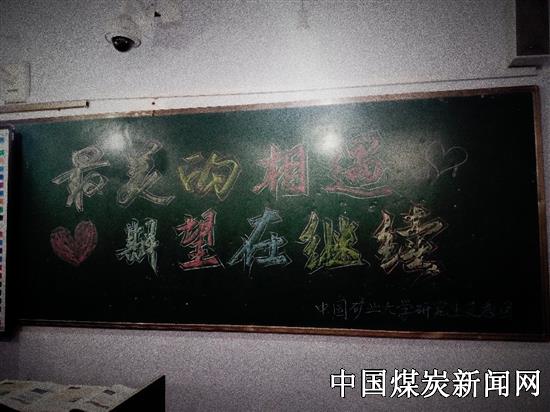 最美的相遇
期望在继续
中国矿业大学研究生支教团
中国煤炭新闻网